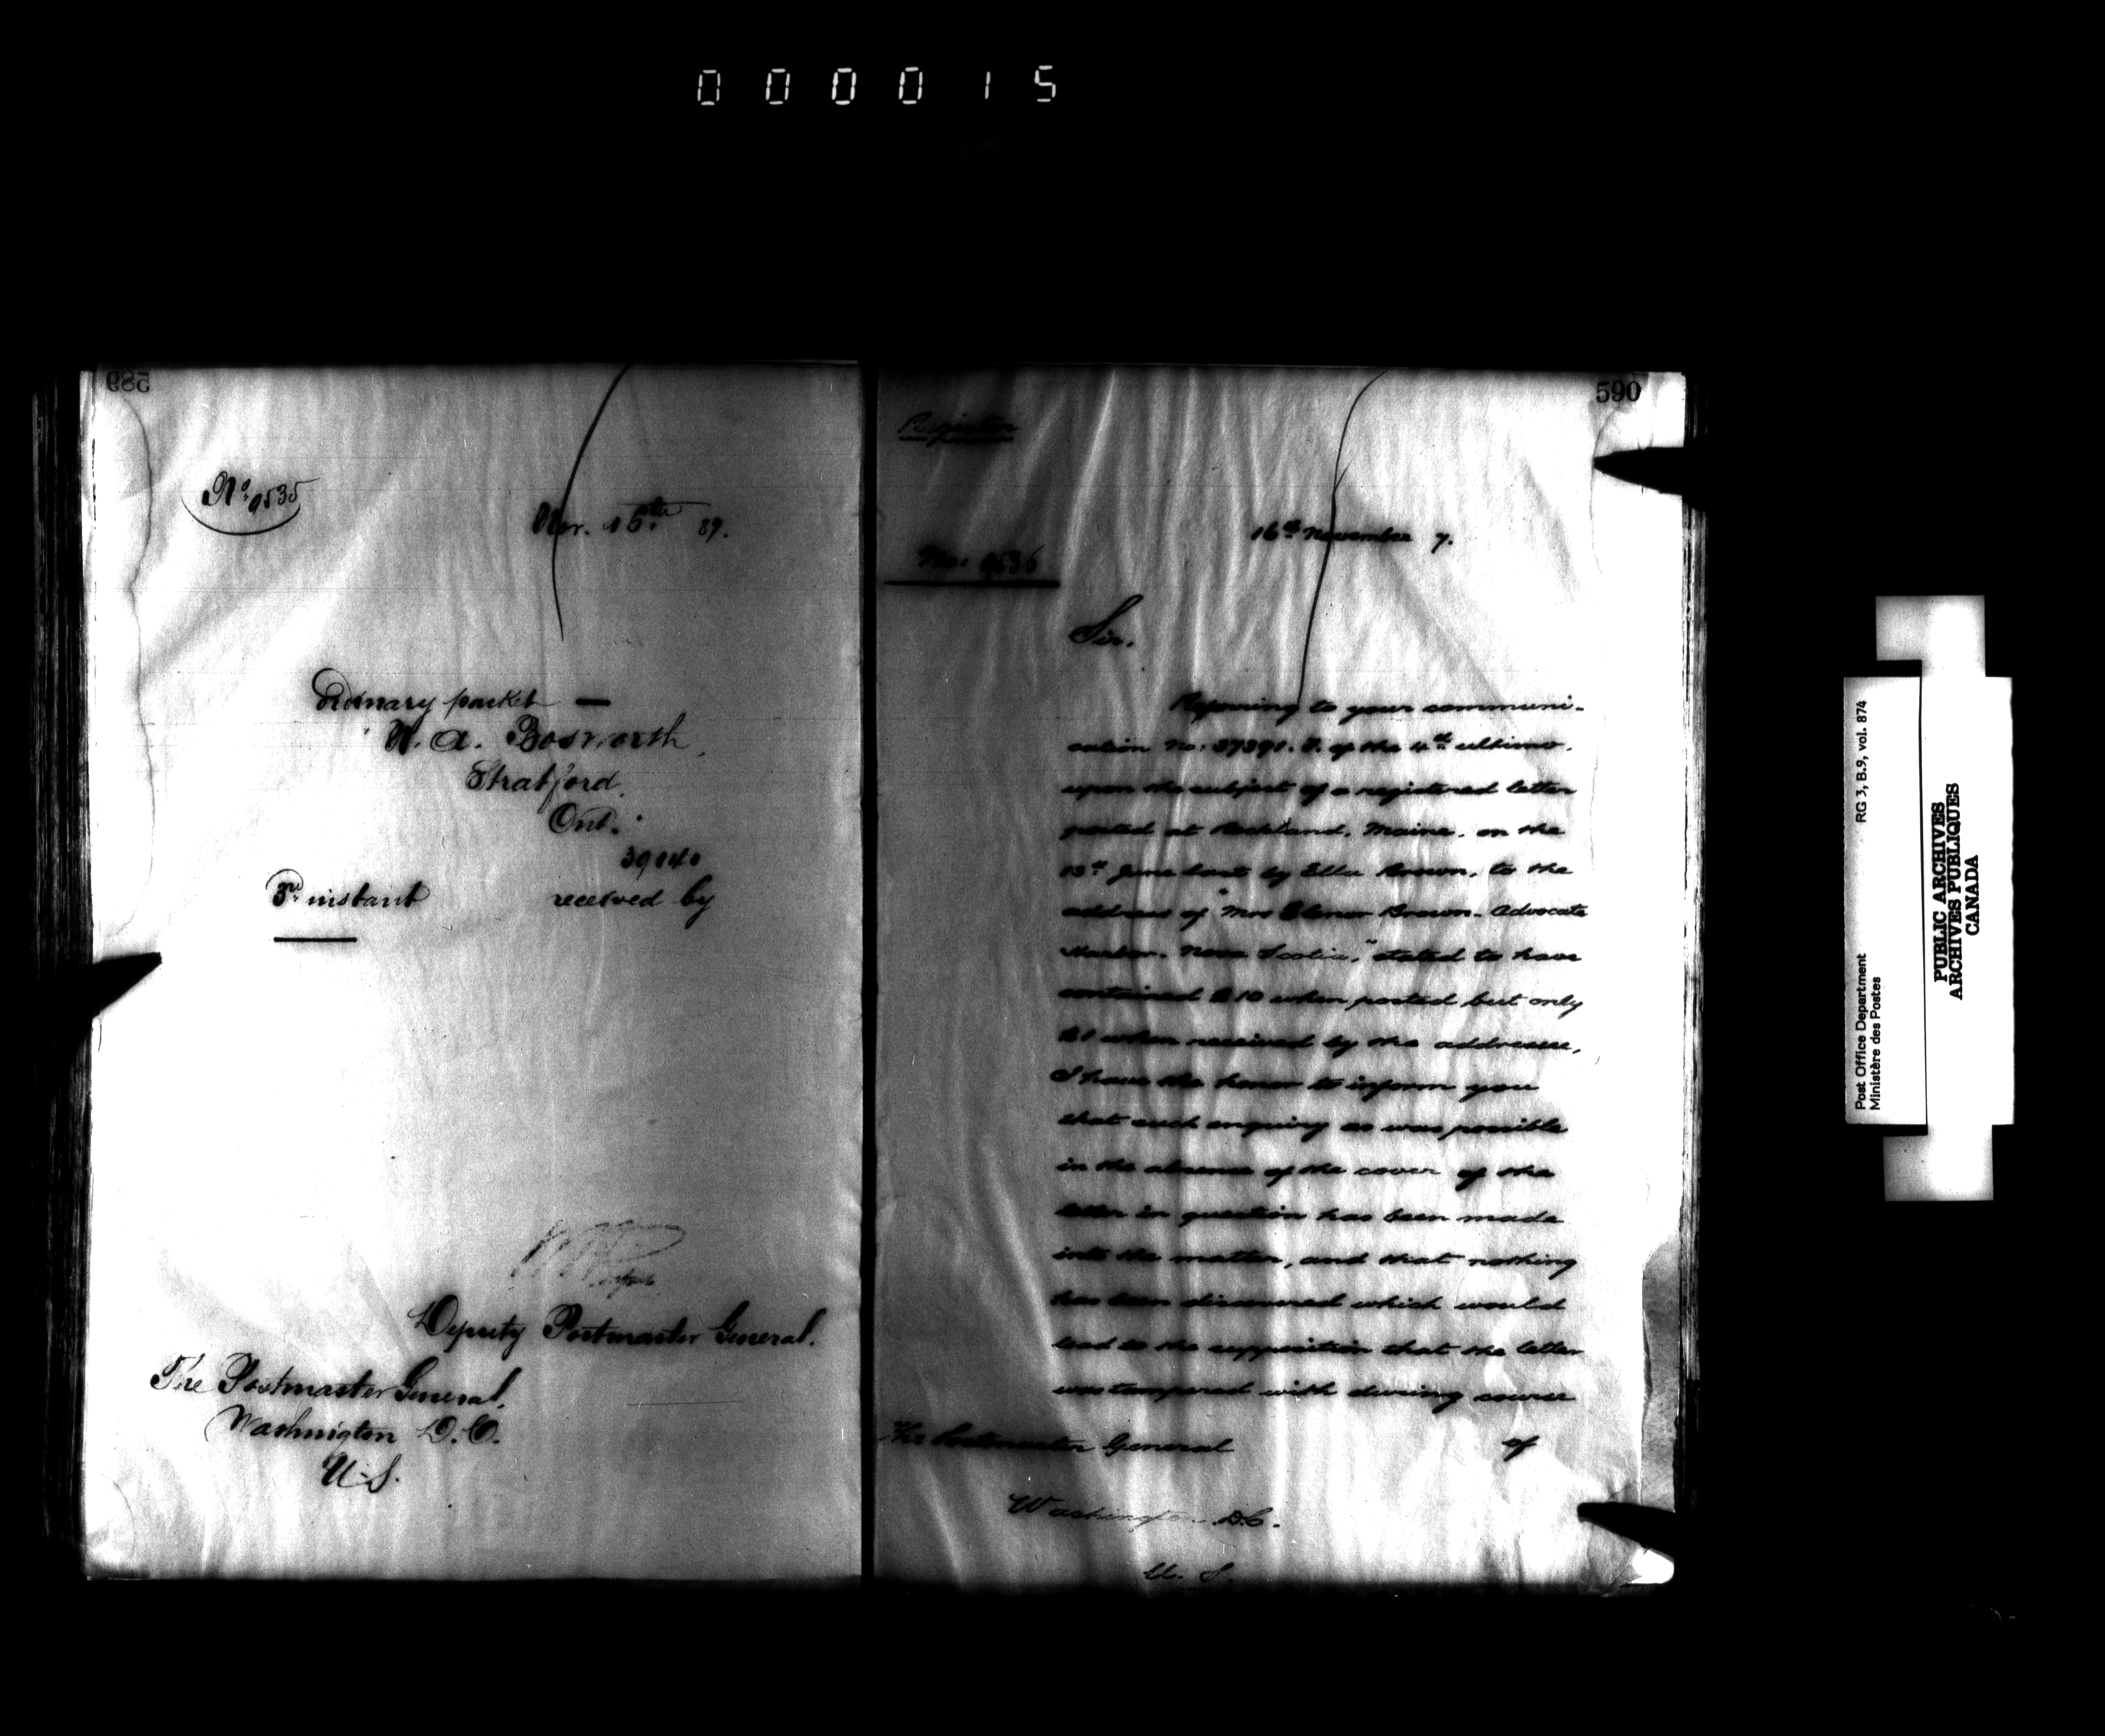 000015
589
No. 9535
Nov. 16th 89.
Ordinary packet —
W. A. Bosworth,
Stratford,
Ont.
39040
3rd instant received by
Deputy Postmaster General.
The Postmaster General,
Washington D.C.
U.S.
590
Registra
No: 9536
16th November 7.
Sir,
Referring to your communi-
cation No: 37391. I. of the 4th ultimo,
upon the subject of a registered letter
posted at Rockland, Maine, on the
13th June last by Ella Brown, to the
address of "Mrs Elenor Brown, Advocate
Harbor, Nova Scotia," stated to have
contained $10 when posted but only
$1 when received by the addressee,
I have the honor to inform you
that such enquiry as was possible
in the absence of the cover of the
letter in question has been made
into the matter, and that nothing
has been discovered which would
lead to the supposition that the letter
was tampered with during course
of
The Postmaster General
Washington D.C.
U. S.
Post Office Department
Ministère des Postes
RG 3, B.9, vol. 874
PUBLIC ARCHIVES
ARCHIVES PUBLIQUES
CANADA